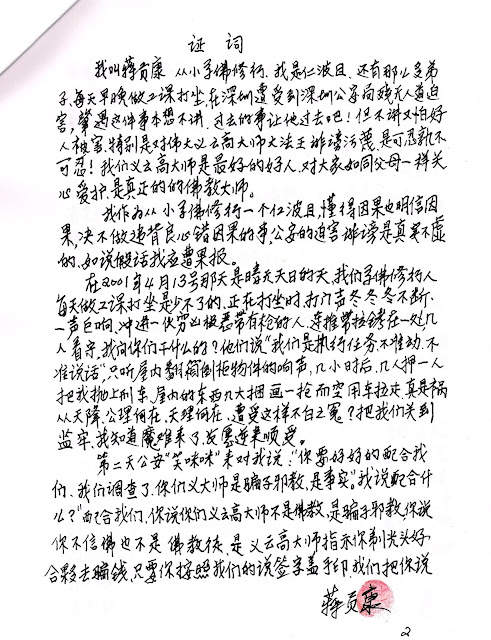 证 词
我叫蒋贡康 从小学佛修行,我是仁波且,还有那么多弟
子,每天早晚做工课打坐,在深圳遭受到深圳公安局残无人道迫
害,肇遇这件事本想不讲,过去的事让他过去吧!但不讲又怕好
人被害,特别是对伟大义云高大师大法王诽谤污蔑,是可忍孰不
可忍!我们义云高大师是最好的好人,对大家如同父母一样关
心爱护,是真正的的佛教大师。
我作为从小学佛修行一个仁波且,懂得因果也明信因
果,决不做违背良心错因果的事,公安的迫害诽谤是真实不虚
的,如说假话我应遭果报。
在2001年4月13号那天是晴天天日的天,我们学佛修行人
每天做工课打坐是少不了的,正在打坐时,打门声冬冬冬不断,
一声巨响,冲进一伙穷凶极恶带有枪的人,连推带拉铐在一处,几
人看守,我问你们干什么的?他们说"我们是执行任务不准动,不
准说话",只听屋内翻箱倒柜物件的响声,几小时后,几人押一人
把我抛上刑车,屋内的东西几大捆画一抢而空用车拉走,真是祸
从天降,公理何在,天理何在,遭受这样不白之冤?把我们关到
监牢,我知道魔难来了,反愿逆来顺受。
第二天公安"笑咪咪"来对我说:"你要好好的配合我
们,我们调查了,你们义大师是骗子邪教,是事实。"我说配合什
么?"配合我们,你说你们义云高大师不是佛教,是骗子邪教,你说
你不信佛也不是佛教徒,是义云高大师指示你剃光头好
合夥去骗钱,只要你按照我们的说签字盖手印,我们把你说
蒋贡康
2